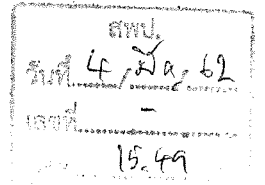 สพป.
วันที่ 4 / มีค / 62
เลขที่ -
15.49